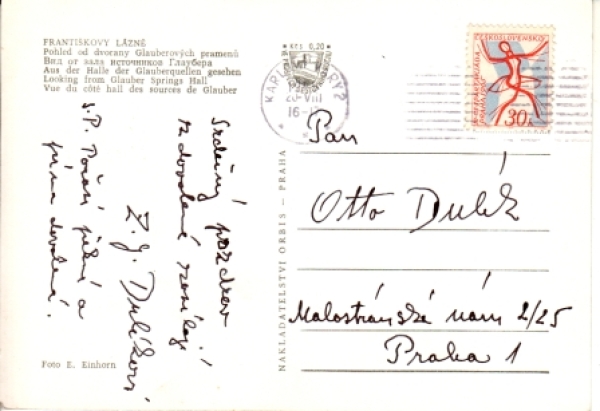 FRANTIŠKOVY LÁZNĚ
Pohled od dvorany Glauberových pramenů
Вид от зала источников Глаубера
Aus der Halle der Glauberquellen gesehen
Looking from Glauber Springs Hall
Vue du côté hall des sources de Glauber
Kčs 0,20
KARLOVY VARY 2
20-VIII
16-
ČESKOSLOVENSKO
PRAHA 1965
30h
Srdečný pozdrav
z dovolené zasílají
Z. J. Dulíkovi
s.P. Počasí pěkné a
prima dovolená.
NAKLADATELSTVÍ ORBIS — PRAHA
Pan
Otto Dulík
Malostránské nám 2/25
Praha 1
Foto E. Einhorn